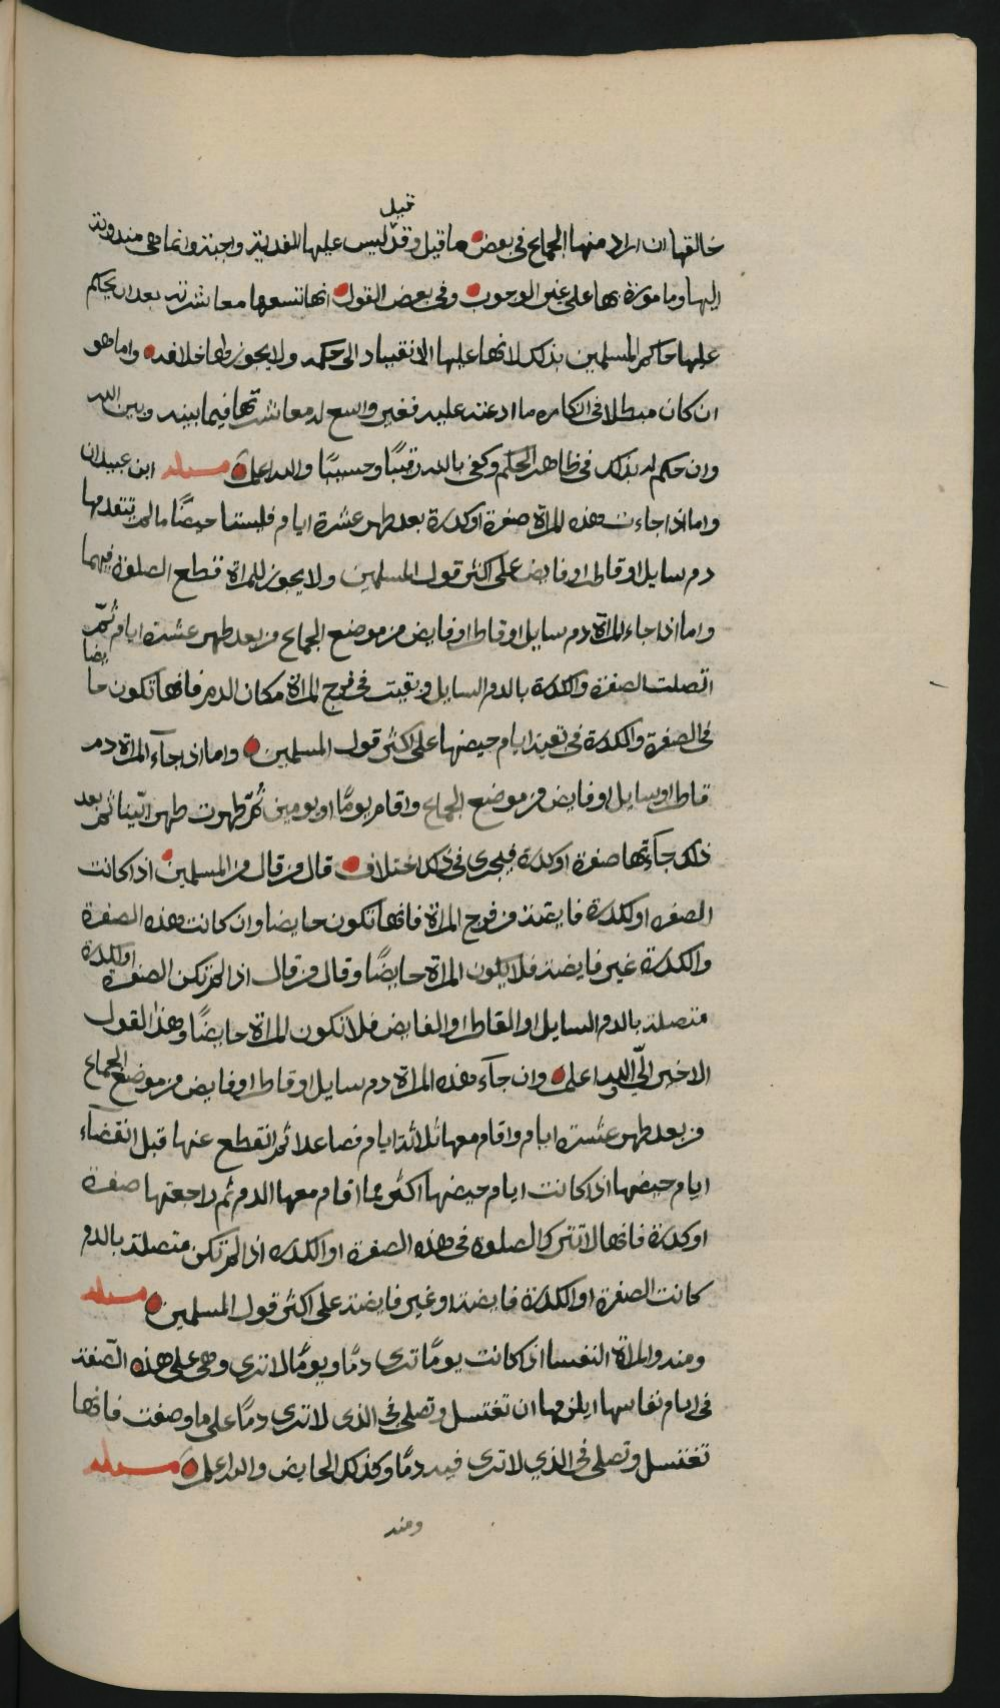 قيل
خالقها ان اراد منها الجماع في بعض ما قيل وقد ليس عليها الفدية واجبة وانما هي مندوبة
اليها ومامورة بها على غير الوجوب وفي بعض القول انها تسعها معاشرته بعد ان يحكم
عليها حاكم المسلمين بذلك لانها عليها الانقياد الى حكمه ولا يجوز لها خلافه واما هو
ان كان مبطلا في انكاره ما ادعته عليه فغير واسع له معاشرتها فيما بينه وبين الله
وان حكم له بذلك في ظاهر الحكم وكفى بالله رقيبًا وحسيبًا والله اعلم مسئله ابن عبيدان
واما اذا جاءت هذه المراة صفرة او كدرة بعد طهر عشرة ايام فليستا حيضًا ما لم تتقدمها
دم سايل او قاطر او فايض على اكثر قول المسلمين ولا يجوز للمراة قطع الصلوة فيهما
واما اذا جاء المراة دم سايل او قاطر او فايض من موضع الجماع من بعد طهر عشرة ايام ثمّ
اتصلت الصفرة والكدرة بالدم السايل وبقيت في فرج المراة مكان الدم فانها تكون حايضا
في الصفرة والكدرة في بقية ايام حيضها على اكثر قول المسلمين واما اذ جآء المراة دم
قاطر او سايل او فايض من موضع الجماع واقام يومًا او يومين ثُمّ طهرت طهرا بّينا ثم بعد
ذلك جآءتها صفرة او كدرة فيجري في ذلك اختلاف قال من قال من المسلمين اذا كانت
الصفره او الكدرة فايضة من فرج المراة فانها تكون حايضا وان كانت هذه الصفرة
والكدرة غير فايضة فلا يكون المراة حايضًا وقال من قال اذا لم تكن الصفرة او الكدرة
متصلة بالدم السايل او القاطر او الفايض فلا تكون المراة حايضًا وهذا القول
الاخير الّي والله اعلم وان جآء هذه المراة دم سايل او قاطر او فايض من موضع الجماع
من بعد طهر عشرة ايام واقام معها ثلاثة ايام فصاعدا ثم انقطع عنها قبل انقضاء
ايام حيضها اذا كانت ايام حيضها اكثر مما اقام معها الدم ثم راجعتها صفرة
او كدرة فانها لا تترك الصلوة في هذه الصفرة او الكدره اذا لم تكن متصلة بالدم
كانت الصفرة او الكدرة فايضة او غير فايضة على اكثر قول المسلمين مسئله
ومنه والمراة النفسا اذا كانت يومًا ترى دمًا ويومًا لا ترى وهي على هذه الصّفة
في ايام نفاسها ايلزمها ان تغتسل وتصلي في الذي لا ترى دمًا على ما وصفت فانها
تغتسل وتصلي في الذي لا ترى فيه دمًا وكذلك الحايض والله اعلم مسئله
ومنه